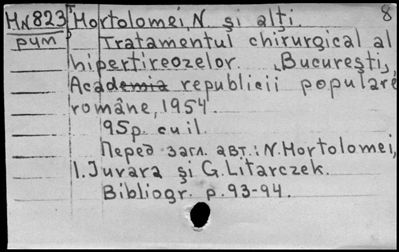 MN823 Hortolomei, N. şi alţi. 8
рум Tratamentul chirurgical al
hipertireozelor. Bucureşti,
Academia republicii populare
române, 1954.
95p. cu il.
Перед загл. авт.: N. Hortolomei,
I. Juvara şi G. Litarczek.
Bibliogr. p. 93-94.